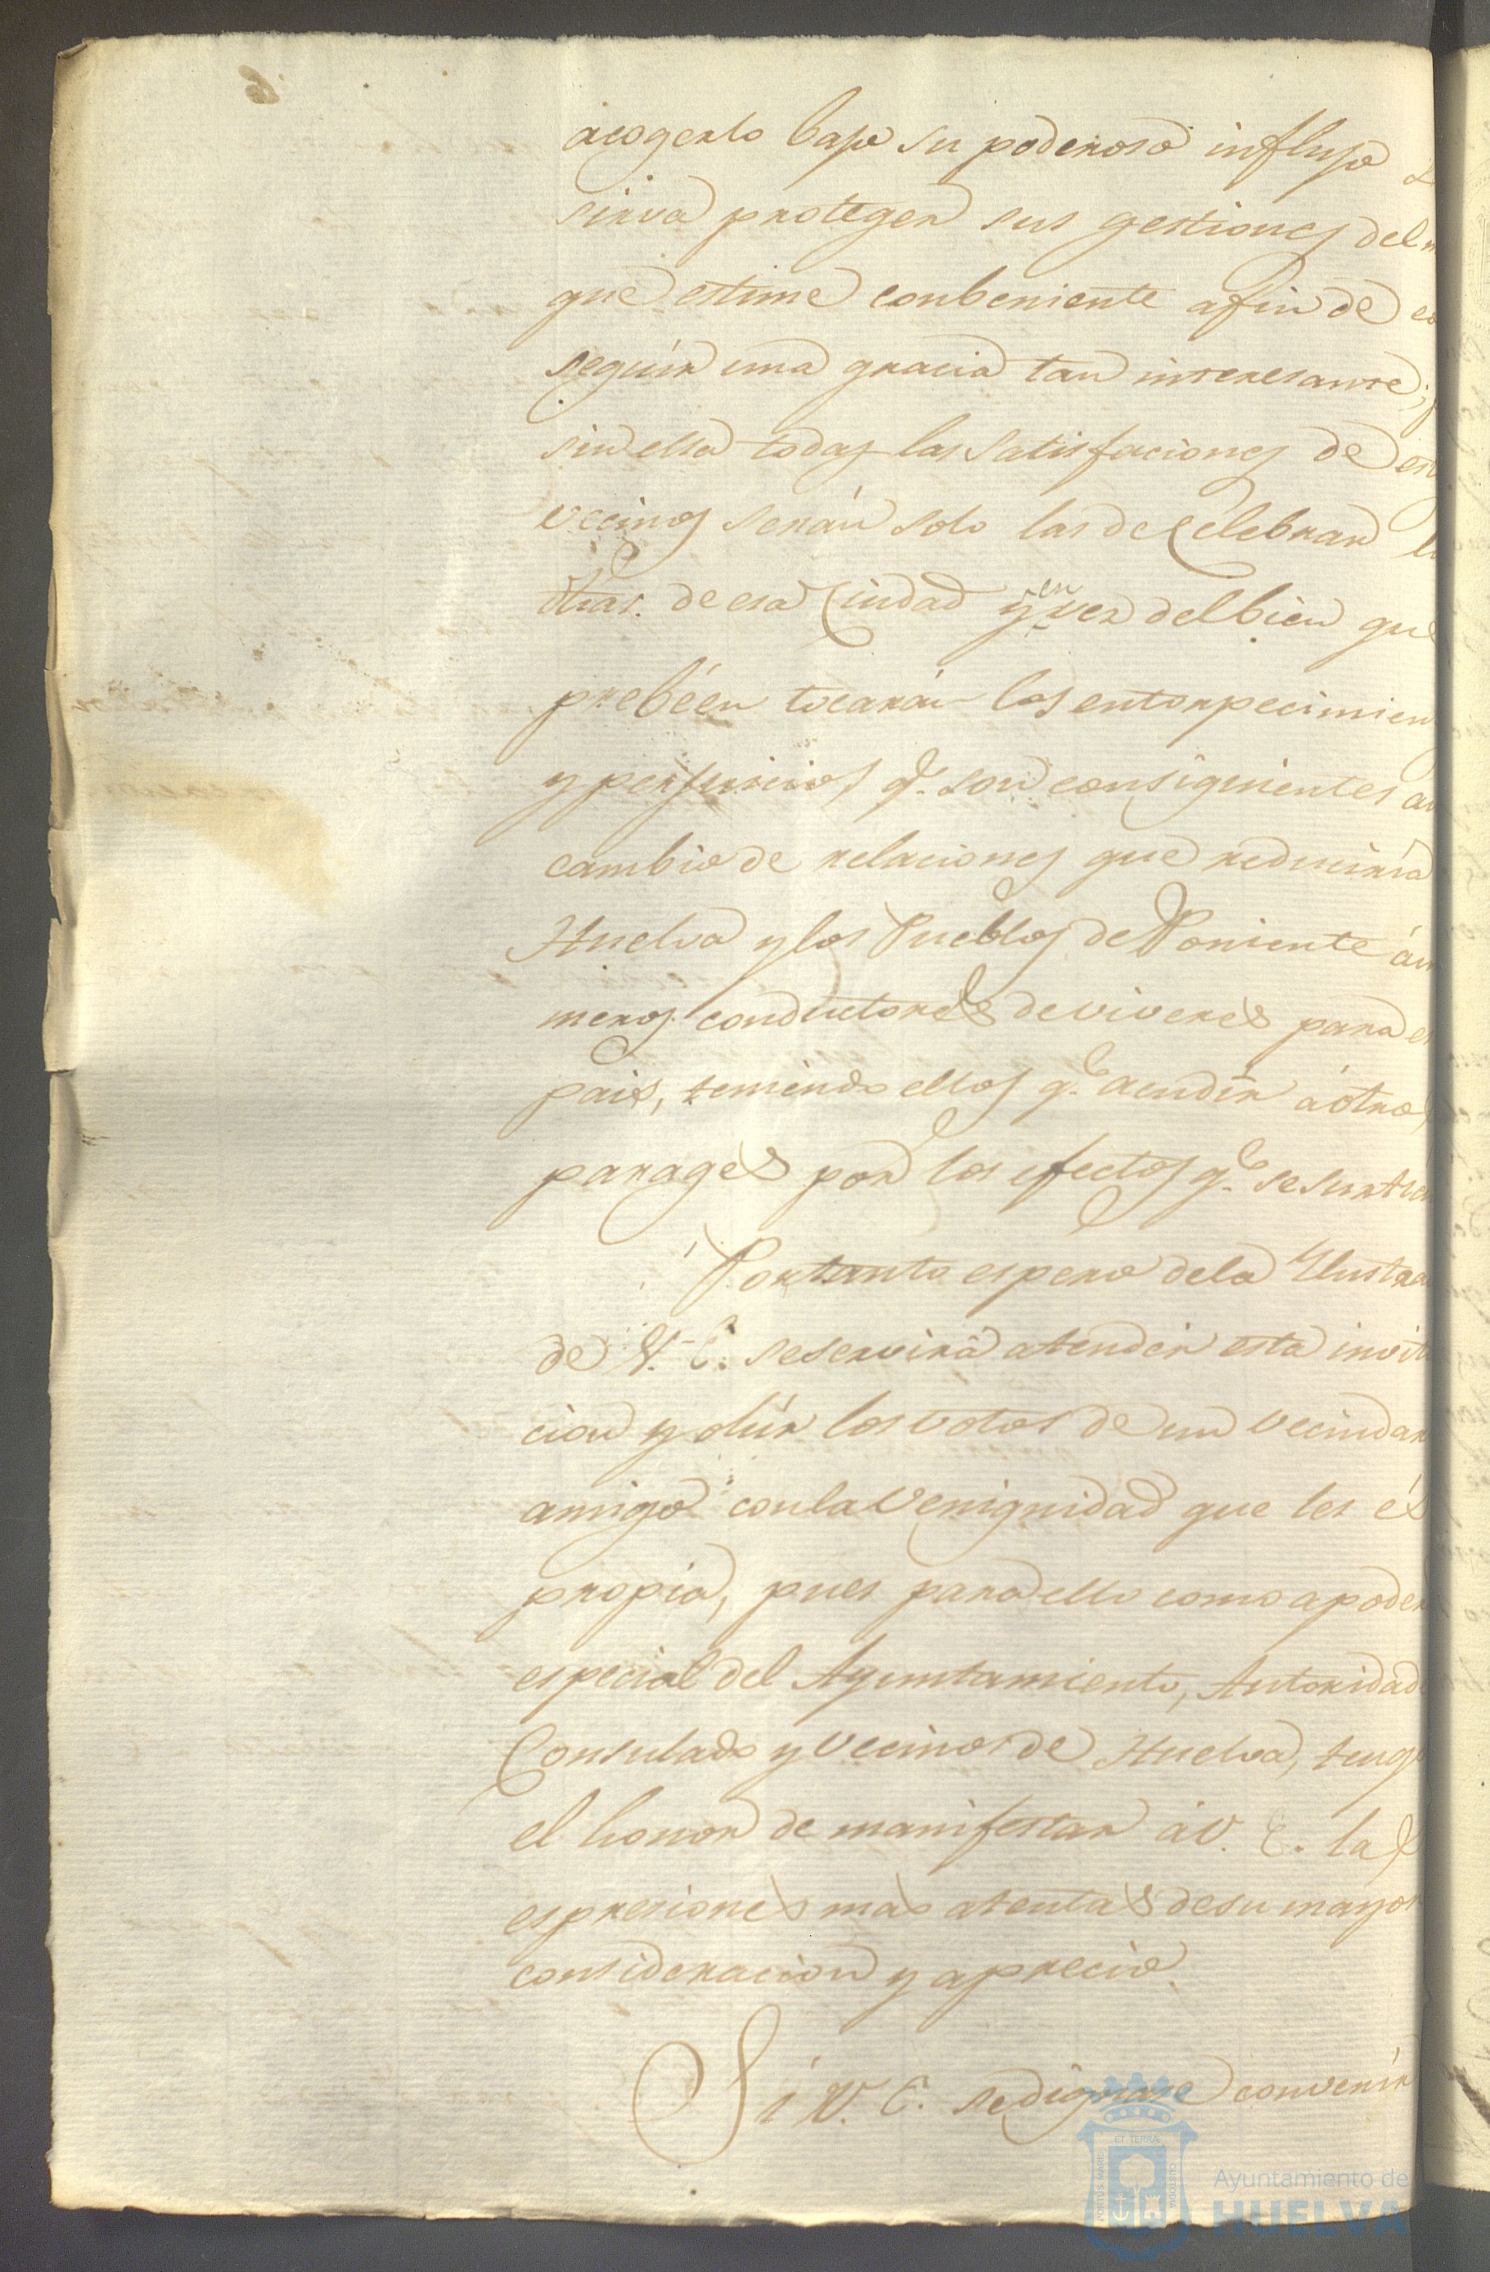 acogerlo bajo su poderoso influjo
sirva proteger sus gestiones del m
que estime conbeniente afin de co
seguir una gracia tan interesante;
sin ella todas las satisfaciones de es
vecinos serán solo las de Celebrar l
otras de esa Ciudad y en vez del bien que
prebéen tocarán los entorpecimien
y perjuicios q.e son consiguientes a
cambio de relaciones que reduciria
Huelva y los Pueblos de Poniente á u
meros conductores de viveres para e
pais, teniendo ellos q.e acudir á otro
parages por los efectos q.e se surten
Portanto espero de la Ylustra
de V. E. se servirá atender esta invita
cion y oír los votos de un vecindar
amigo con la Venignidad que les és
propia, pues para ello como apoder
especial del Ayuntamiento, Autoridad
Consulado y vecinos de Huelva, teng
el honor de manifestar á V. E. las
espresiones mas atentas de su mayor
consideracion y aprecio.
Si V. E. se dignase convenir
PORTUS MARIS
ET TERRÆ
CUSTODIA
Ayuntamiento de
HUELVA